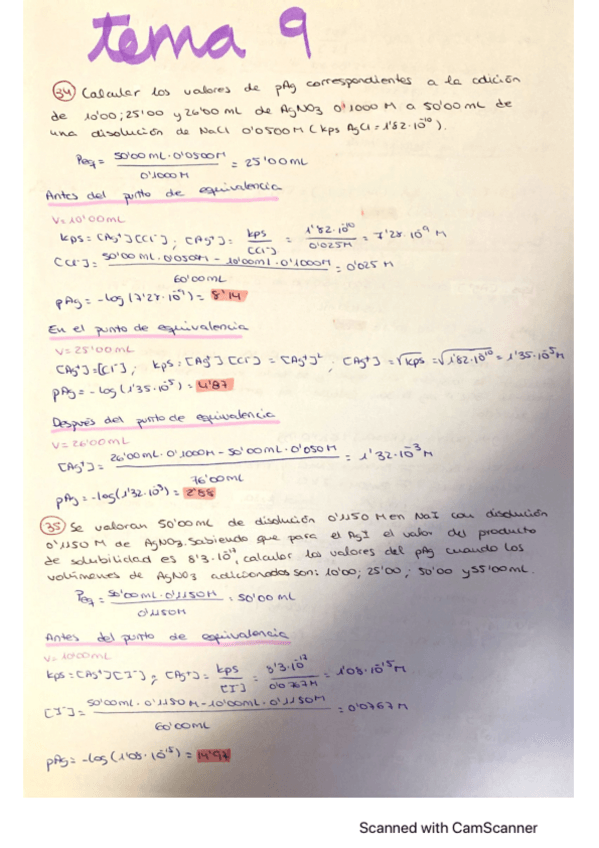 tema 9
34 Calcular los valores de pAg correspondientes a la adición
de 10'00; 25'00 y 26'00 mL de AgNO3 0'1000 M a 50'00 mL de
una disolución de NaCl 0'0500M (kps AgCl = 1'82·10^-10).
Peq = 50'00 mL · 0'0500M / 0'1000M = 25'00 mL
Antes del punto de equivalencia
V = 10'00 mL
kps = [Ag+][Cl-] ; [Ag+] = kps / [Cl-] = 1'82·10^-10 / 0'025M = 7'28·10^-9 M
[Cl-] = 50'00 mL · 0'0500M - 10'00 mL · 0'1000M / 60'00 mL = 0'025 M
pAg = -log (7'28·10^-9) = 8'14
En el punto de equivalencia
V = 25'00 mL
[Ag+] = [Cl-] ; kps = [Ag+][Cl-] = [Ag+]² ; [Ag+] = √kps = √1'82·10^-10 = 1'35·10^-5 M
pAg = -log (1'35·10^-5) = 4'87
Después del punto de equivalencia
V = 26'00 mL
[Ag+] = 26'00 mL · 0'1000M - 50'00 mL · 0'050M / 76'00 mL = 1'32·10^-3 M
pAg = -log(1'32·10^-3) = 2'88
35 Se valoran 50'00 mL de disolución 0'1150 M en NaI con disolución
0'1150 M de AgNO3. Sabiendo que para el AgI el valor del producto
de solubilidad es 8'3·10^-17, calcular los valores del pAg cuando los
volúmenes de AgNO3 adicionados son: 10'00; 25'00; 50'00 y 55'00 mL.
Peq = 50'00 mL · 0'1150M / 0'1150M = 50'00 mL
Antes del punto de equivalencia
V = 10'00 mL
kps = [Ag+][I-] ; [Ag+] = kps / [I-] = 8'3·10^-17 / 0'0767M = 1'08·10^-15 M
[I-] = 50'00 mL · 0'1150M - 10'00 mL · 0'1150M / 60'00 mL = 0'0767 M
pAg = -log (1'08·10^-15) = 14'97
Scanned with CamScanner